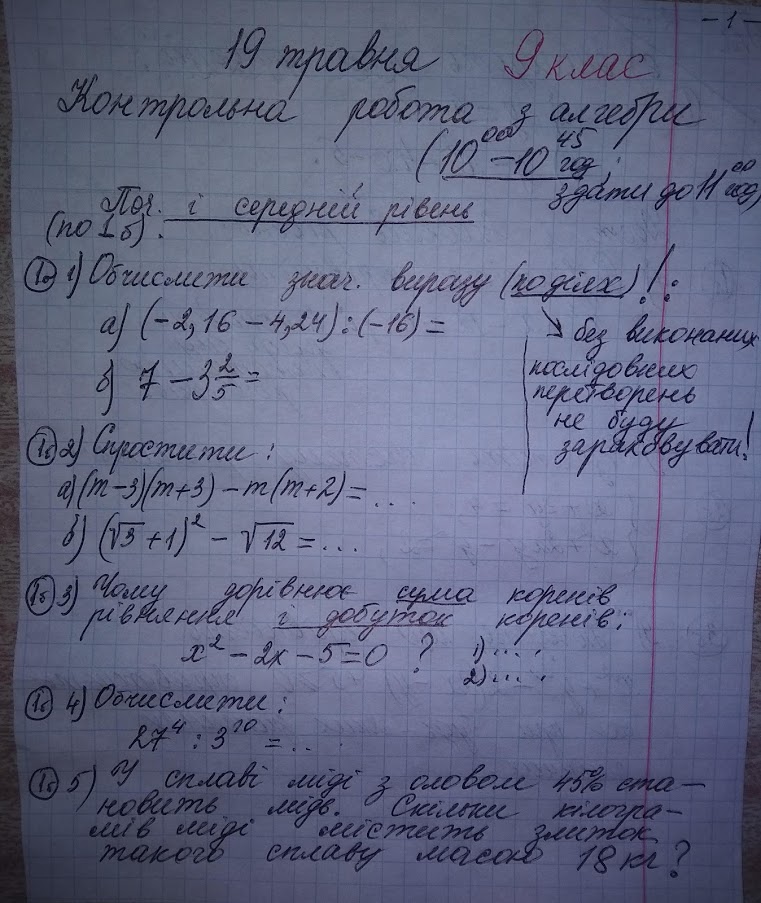 - 1 -
19 травня 9 клас
Контрольна робота з алгебри
(10⁰⁰ – 10⁴⁵ год,
здати до 11⁰⁰ год)
Поч. і середній рівень
(по 1б):
1б 1) Обчислити знач. виразу (по діях)!:
а) (-2,16 - 4,24) : (-16) =
без виконаних
б) 7 - 3 2/5 =
послідовних
перетворень
не буду
зараховувати!
1б 2) Спростити:
а) (m-3)(m+3) - m(m+2) = ...
б) (√3 + 1)² - √12 = ...
1б 3) Чому дорівнює сума коренів
рівняння і добуток коренів:
x² - 2x - 5 = 0 ? 1) ....
2) ....
1б 4) Обчислити:
27⁴ : 3¹⁰ = ...
1б 5) У сплаві міді з оловом 45% ста-
новить мідь. Скільки кілогра-
мів міді містить злиток
такого сплаву масою 18 кг?